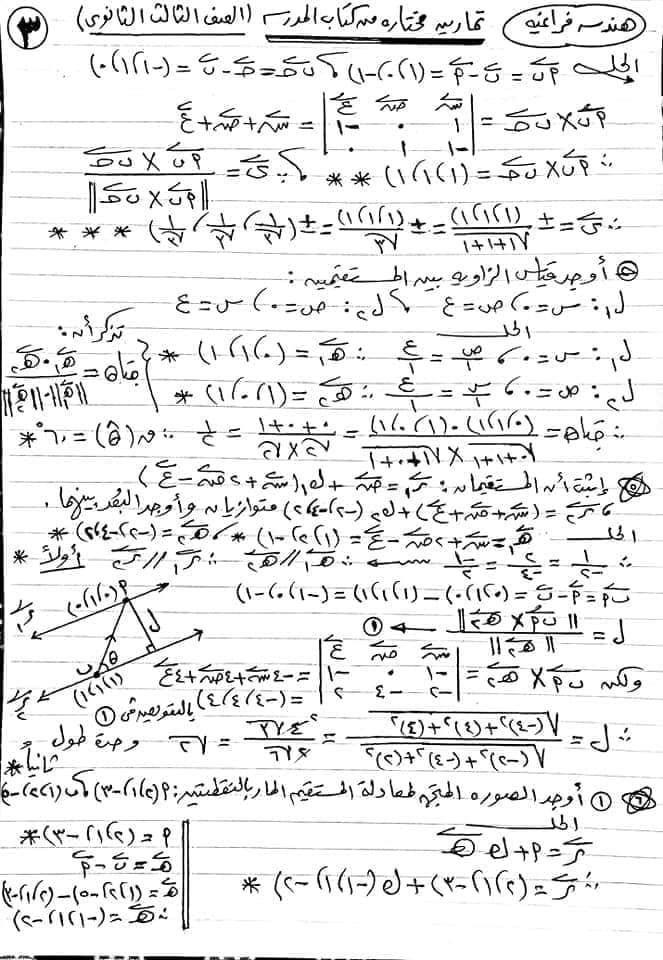 هندسة فراغية
تمارين مختارة من كتاب المدرسة (الصف الثالث الثانوي)
٣
الحل
أب = ب - أ = (١، ٠، -١) ، ب ح = ح - ب = (-١، ١، ٠)
أب × ب ح = | س ص ع ؛ ١ ٠ -١ ؛ -١ ١ ٠ | = س + ص + ع
∴ أب × ب ح = (١، ١، ١) ** ، ى = (أب × ب ح) / ||أب × ب ح||
∴ ى = ± (١، ١، ١) / √(١+١+١) = ± (١، ١، ١) / √٣ = ± (١/√٣، ١/√٣، ١/√٣) ***
أوجد قياس الزاوية بين المستقيمين :
ل١ : س = ٠ ، ص = ع ، ل٢ : ص = ٠ ، س = ع
الحل
تذكر أن :
ل١ : س = ٠ ، ص/١ = ع/١ ∴ هـ١ = (٠، ١، ١) *
ل٢ : ص = ٠ ، س/١ = ع/١ ∴ هـ٢ = (١، ٠، ١) *
جتا θ = |هـ١ · هـ٢| / ||هـ١|| ||هـ٢||
∴ جتا θ = (٠، ١، ١) · (١، ٠، ١) / √(٠+١+١) × √(١+٠+١) = (٠+٠+١) / √٢ × √٢ = ١/٢ ∴ ق(θ) = ٦٠° *
٥ إثبت أن المستقيمان : ر١ = ص + ك١ (س + ٢ص - ع)
، ر٢ = (س + ص + ع) + ك٢ (-٢، -٤، ٢) متوازيان وأوجد البعد بينهما .
الحل
هـ١ = س + ٢ص - ع = (١، ٢، -١) * ، هـ٢ = (-٢، -٤، ٢) *
∴ ١/-٢ = ٢/-٤ = -١/٢ ∴ هـ١ // هـ٢ ∴ ر١ // ر٢ أولاً *
ب أ = أ - ب = (٠، ١، ٠) - (١، ١، ١) = (-١، ٠، -١)
ل = ||ب أ × هـ٢|| / ||هـ٢|| ← ①
ر١ أ (٠، ١، ٠)
ل
ب θ
ر٢ (١، ١، ١)
ولكن ب أ × هـ٢ = | س ص ع ؛ -١ ٠ -١ ؛ -٢ -٤ ٢ | = -٤س + ٤ص + ٤ع
= (-٤، ٤، ٤) بالتعويض في ①
∴ ل = √((-٤)² + (٤)² + (٤)²) / √((-٢)² + (-٤)² + (٢)²) = ٤√٣ / ٢√٦ = √٢ وحدة طول
ثانياً *
٦ ① أوجد الصورة المتجهة لمعادلة المستقيم المار بالنقطتين : أ (٢، ١، -٣) ، ب (١، ٢، -٥)
الحل
ر = أ + ك هـ
∴ ر = (٢، ١، -٣) + ك (-١، ١، -٢) *
أ = (٢، ١، -٣) *
هـ = ب - أ
هـ = (١، ٢، -٥) - (٢، ١، -٣)
∴ هـ = (-١، ١، -٢)